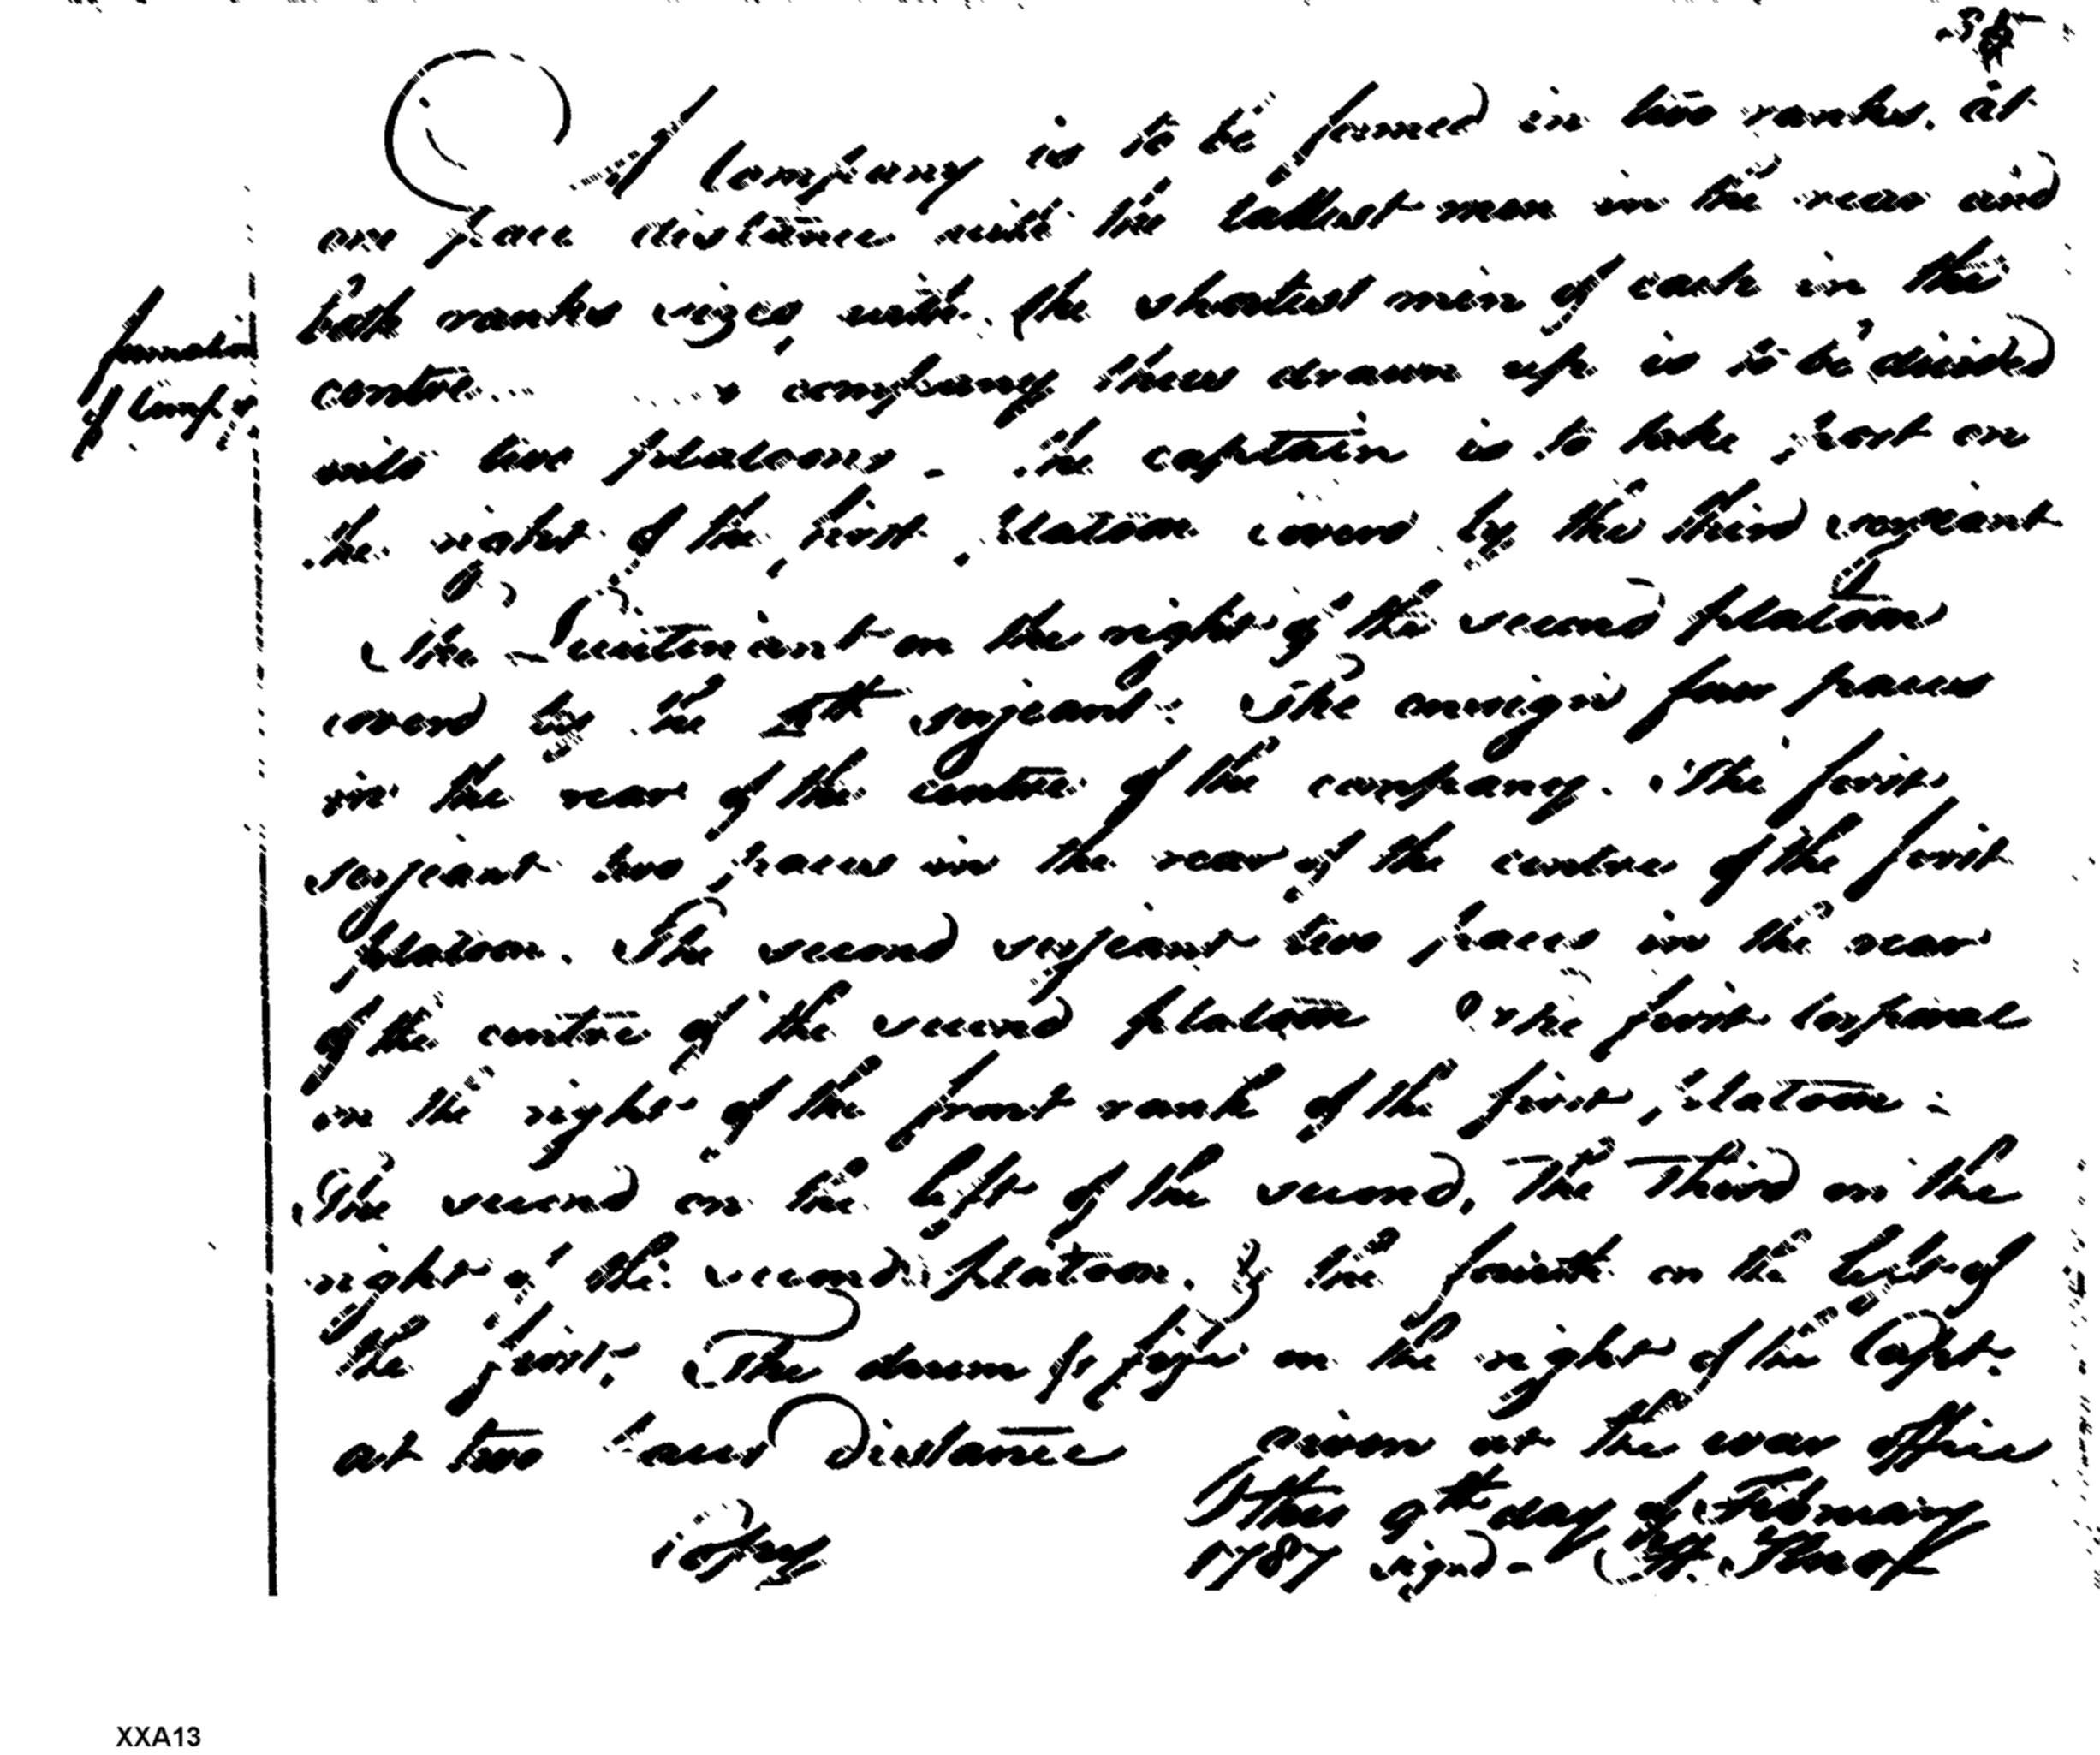 35
A Company is to be formed in two ranks. at
one pace distance with the tallest men in the rear and
both ranks sized, with the shortest men of each in the
formation
of Comp.y
centre company thus drawn up is to be divided
into two platoons - the captain is to take post on
the right of the first platoon coverd by the third serjeant
The Lieutenant on the right of the second platoon
coverd by the 4th serjeant. The ensign four paces
in the rear of the centre of the company. The first
serjeant two paces in the rear of the centre of the first
platoon. The second serjeant two paces in the rear
of the centre of the second platoon The first corporal
on the right of the front rank of the first platoon.
The second on the left of the second, The Third on the
right of the second platoon. & the fourth on the left of
the first. The drum & fife on the right of the Capt.
at two paces Distance given at the war office
this 9th day of February
Copy 1787 signd - Knox
XXA13